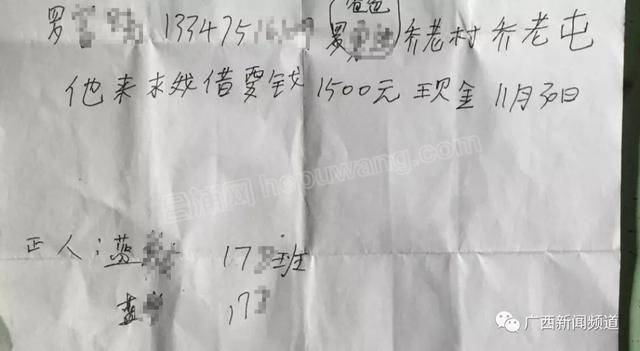 爸爸
罗 133475 罗 乔老村乔老屯
他来求我借要钱1500元现金 11月30日
正人:蓝 17 班
蓝 17
合浦网 hepuwang.com
广西新闻频道